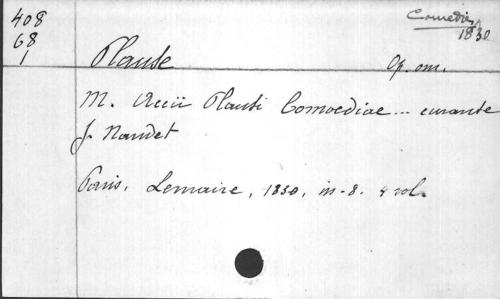 408
68
1
Comedies
1830
Plaute
Op. om.
M. Accii Plauti Comoediae ... curante
J. Naudet
Paris, Lemaire, 1830, in-8. 4 vol.